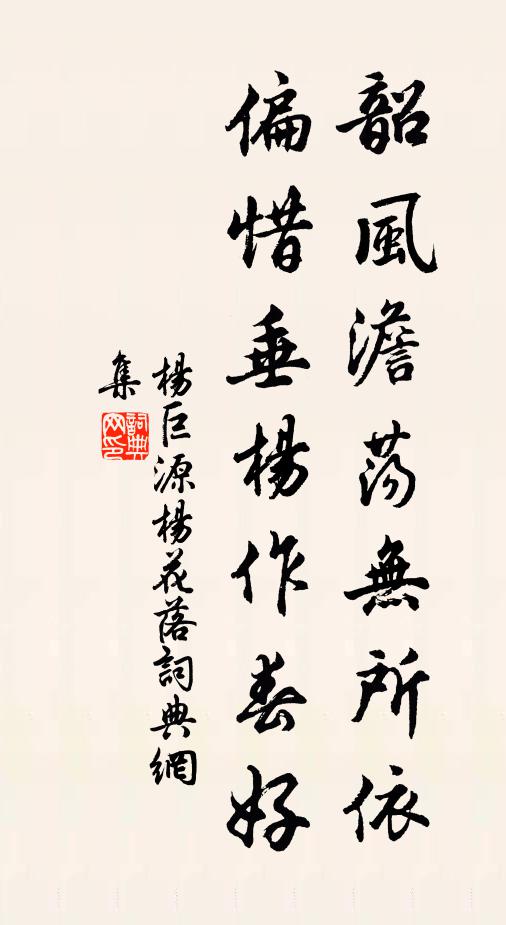 韶風澹荡無所依
偏惜垂楊作春好
楊巨源楊花落詞典網
集
詞典
网印